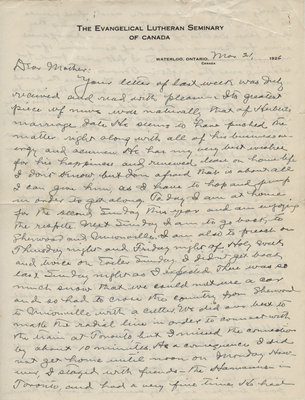 THE EVANGELICAL LUTHERAN SEMINARY
OF CANADA
WATERLOO, ONTARIO, Mar 21, 1926
CANADA
Dear Mother:
Your letter of last week was duly
received and read with pleasure. Its greatest
piece of news was naturally that of
marriage date. He seems to have pushed the
matter right along with all of his business
and acumen. He has my very best wishes
for his happiness and renewed lease on home life
I don't know, but I'm afraid that is about all
I can give him, as I have to hop and jump
in order to get along. Today I am at home
for the second Sunday this year and am enjoying
the respite. Next Sunday I am to go back to
Sherwood and Unionville. I am also to preach on
Thursday night and Friday night of Holy Week
and twice on Easter Sunday. I didn't get back
last Sunday night as I expected. There was so
much snow that we could not use a car
and so had to cross the country from Sherwood
to Unionville with a cutter. We did our best to
make the radial line in order to connect with
the train at Toronto but I missed the connection
by about 10 minutes. As a consequence I did
not get home until noon on Monday. How-
ever, I stayed with friends - the in
Toronto, and had a very fine time. He had